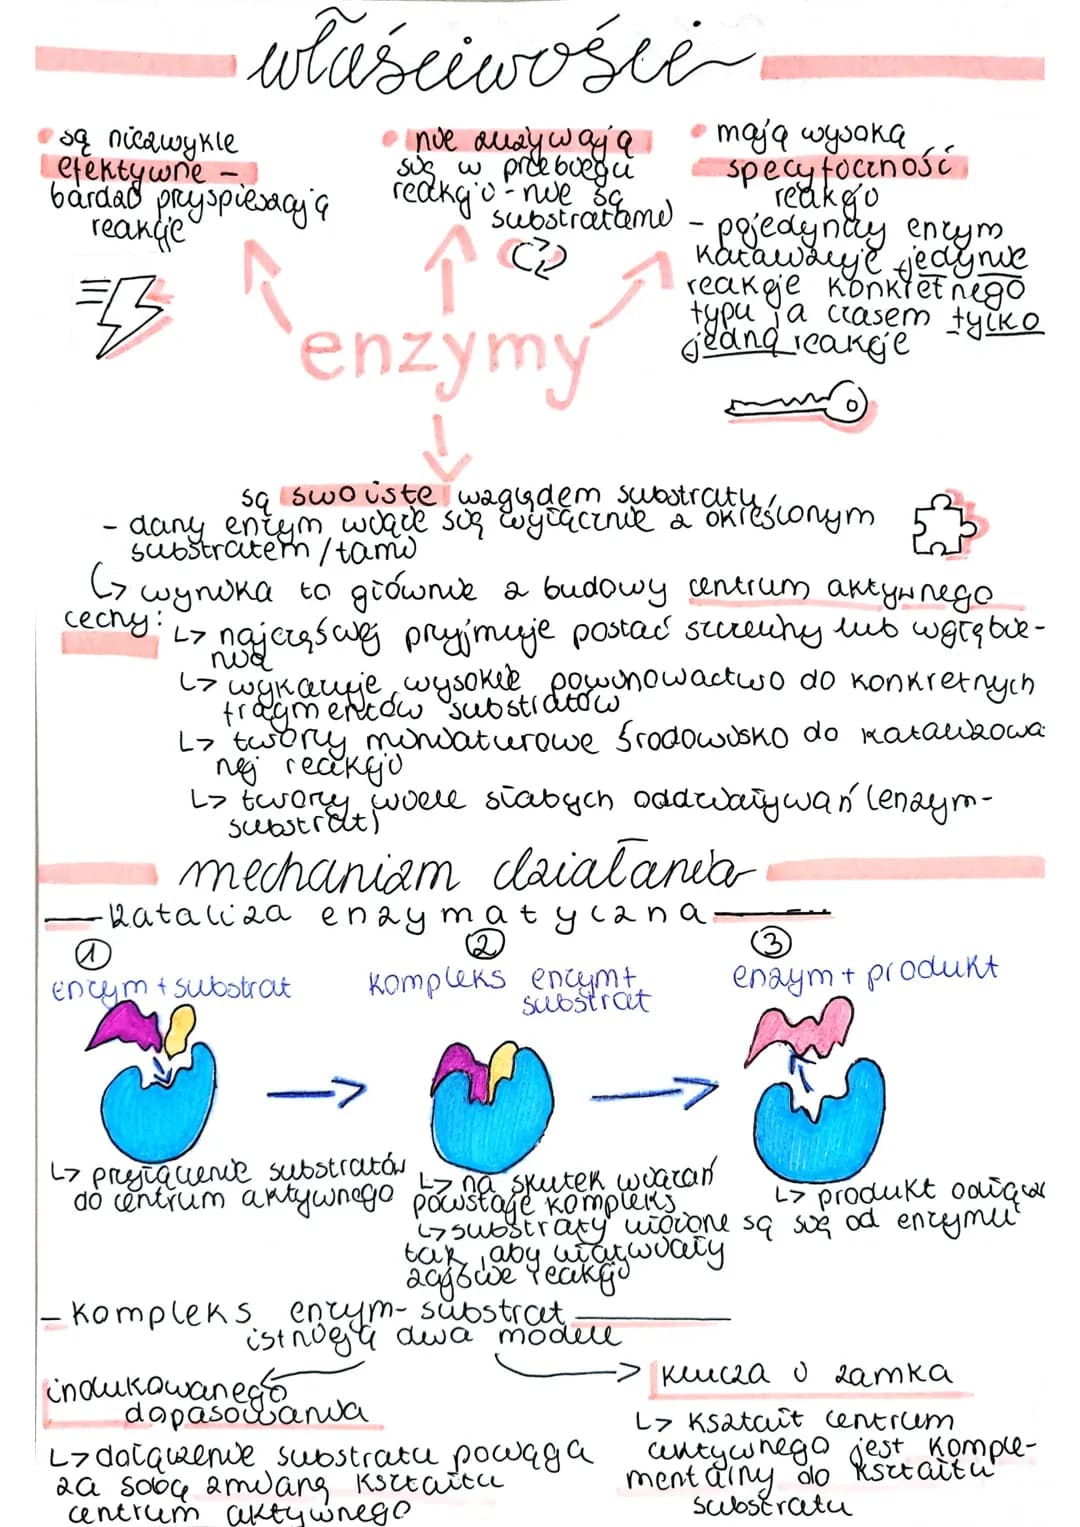 właściwości
• są niezwykle
efektywne -
bardzo przyspieszają
reakcje
• nie zużywają
się w przebiegu
reakcji - nie są
substratami
• mają wysoką
specyficzność
reakcji
- pojedynczy enzym
katalizuje jedynie
reakcje konkretnego
typu, a czasem tylko
jedną reakcję
enzymy
są swoiste względem substratu,
- dany enzym wiąże się wyłącznie z określonym
substratem/tami
↳ wynika to głównie z budowy centrum aktywnego
cechy:
↳ najczęściej przyjmuje postać szczeliny lub wgłębie-
nia
↳ wykazuje wysokie powinowactwo do konkretnych
fragmentów substratów
↳ tworzy miniaturowe środowisko do katalizowa
nej reakcji
↳ tworzy wiele słabych oddziaływań (enzym-
substrat)
mechanizm działania
- kataliza enzymatyczna -
①
enzym + substrat
↳ przyłączenie substratów
do centrum aktywnego
②
kompleks enzym+
substrat
↳ na skutek wiązań
powstaje kompleks
↳ substraty ułożone są
tak, aby ułatwiały
zajście reakcji
③
enzym + produkt
↳ produkt odłącza
się od enzymu
- kompleks enzym-substrat
istnieją dwa modele
indukowanego
dopasowania
↳ dołączenie substratu pociąga
za sobą zmianę kształtu
centrum aktywnego
klucza i zamka
↳ kształt centrum
aktywnego jest komple-
mentarny do kształtu
substratu